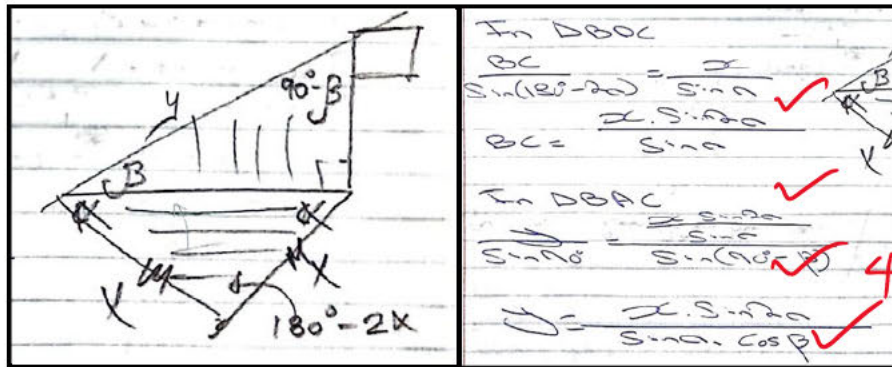 y
90°-β
β
α
α
x
x
180°-2x
In ΔBDC
BC/sin(180°-2α) = x/sin α
BC = x. sin2α/sin α
In ΔBAC
y/sin90° = (x sin2α/sin α)/sin(90°-β)
4
y = x. sin2α/sin α. cos β
β
α
x